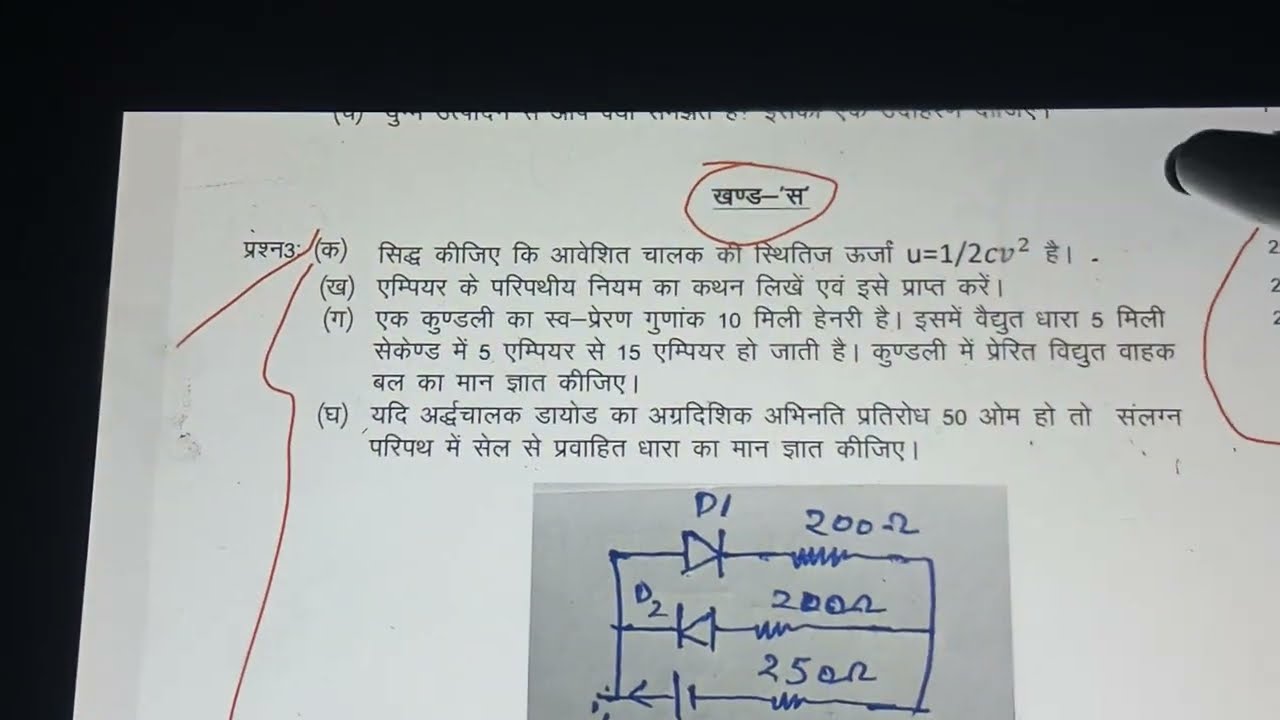 खण्ड–'स'
प्रश्न3: (क) सिद्ध कीजिए कि आवेशित चालक की स्थितिज ऊर्जा u=1/2cv² है।
(ख) एम्पियर के परिपथीय नियम का कथन लिखें एवं इसे प्राप्त करें।
(ग) एक कुण्डली का स्व–प्रेरण गुणांक 10 मिली हेनरी है। इसमें वैद्युत धारा 5 मिली
सेकेण्ड में 5 एम्पियर से 15 एम्पियर हो जाती है। कुण्डली में प्रेरित विद्युत वाहक
बल का मान ज्ञात कीजिए।
(घ) यदि अर्द्धचालक डायोड का अग्रदिशिक अभिनति प्रतिरोध 50 ओम हो तो संलग्न
परिपथ में सेल से प्रवाहित धारा का मान ज्ञात कीजिए।
D1
200Ω
D2
200Ω
250Ω